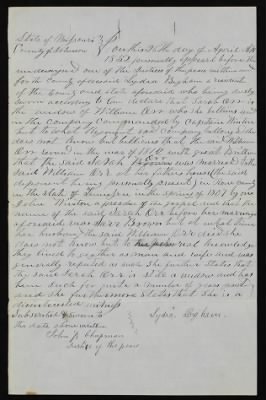 State of Missouri
County of Johnson } On this 28th day of April AD
1852 personally appeared before the
undersigned one of the Justices of the peace within and
for the County aforesaid Lydia a resident
of the County and state aforesaid who being duly
sworn according to law declare that Sarah Orr is
the widow of William Orr who she believes was
in the Company Commanded by Captain
but to what Regiment said Company belonged she does
not know but believes that the said William
Orr served in the war of 1812 with great Britain
that the said Sarah Orr was married to the
said William Orr at her fathers house the said
deponent being personally present in County
in the State of Tennessee in the spring of by one
John a preacher of the gospel and that the
name of the said Sarah Orr before her marriage
aforesaid was Brown but at what time
her husband the said William Orr died she
does not know but to her personal knowledge
they lived together as man and wife and was
generally reputed as such she further States that
the said Sarah Orr is still a widow and has
been such for quite a number of years past
and she furthermore States that she is a
disinterested witness
Subscribed & sworn to
the date above written
Lydia
John J. Chapman
Justice of the peace